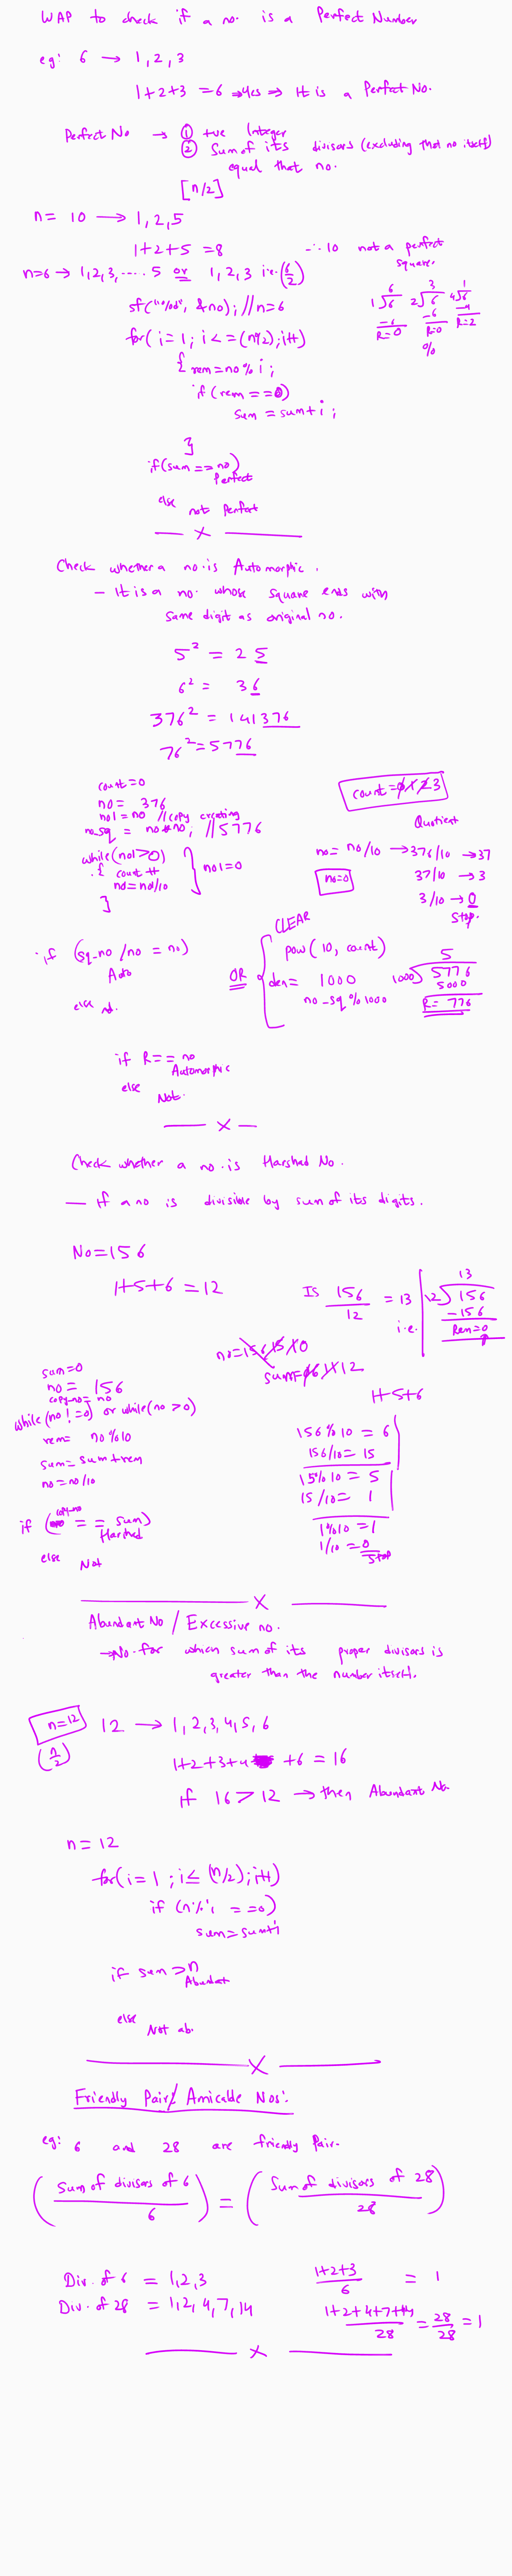 WAP to check if a no. is a Perfect Number
eg: 6 → 1, 2, 3
1+2+3 = 6 ⇒ yes ⇒ It is a Perfect No.
Perfect No → ① +ve Integer
② Sum of its divisors (excluding that no itself)
equal that no.
[n/2]
n = 10 → 1, 2, 5
1+2+5 = 8 ∴ 10 not a perfect
square.
n=6 → 1, 2, 3, .... 5 or 1, 2, 3 i.e. (6/2)
sf("%d", &no); // n=6
for( i = 1; i <= (n/2); i++)
{ rem = no % i ;
if (rem == 0)
sum = sum + i ;
}
if (sum == no)
Perfect
else
not Perfect
1) 6 6 -6 R=0
2) 6 3 -6 R=0
4) 6 1 -4 R=2
%
— x —
Check whether a no. is Automorphic .
- It is a no. whose square ends with
same digit as original no.
5² = 25
6² = 36
376² = 141376
76² = 5776
count=0
no = 376
no1 = no // copy creating
no_sq = no * no; // 5776
while (no1>0)
{ count ++
no = no/10
}
no1=0
count = 0 1 2 3
Quotient
no = no/10 → 376/10 → 37
37/10 → 3
no=0
3/10 → 0
Stop.
if (sq-no / no = no)
Auto
else not.
OR
CLEAR
pow( 10, count)
den = 1000
no_sq % 1000
1000) 5776 5
5000
R = 776
if R == no
Automorphic
else
Not.
— x —
Check whether a no. is Harshad No.
— If a no is divisible by sum of its digits.
No = 156
1+5+6 = 12
Is 156/12 = 13 i.e. 12) 156 13
-156
Rem=0
no = 156 15 1 0
sum = 0 6 11 12
1+5+6
sum=0
no = 156
copy-no = no
while (no != 0) or while (no > 0)
rem = no % 10
sum = sum + rem
no = no/10
if (copy-no == sum)
Harshad
else
Not
156 % 10 = 6
156/10 = 15
15 % 10 = 5
15/10 = 1
1 % 10 = 1
1/10 = 0
Stop
— x —
Abundant No / Excessive no.
→ No. for which sum of its proper divisors is
greater than the number itself.
n=12
(n/2)
12 → 1, 2, 3, 4, 5, 6
1+2+3+4 +6 = 16
If 16 > 12 → then Abundant No.
n = 12
for( i = 1 ; i ≤ (n/2) ; i++)
if (n % i == 0)
sum = sum+i
if sum > n
Abundat
else
Not ab.
— x —
Friendly Pair / Amicable Nos:
eg: 6 and 28 are friendly Pair.
(Sum of divisors of 6 / 6) = (Sum of divisors of 28 / 28)
Div. of 6 = 1, 2, 3
Div. of 28 = 1, 2, 4, 7, 14
1+2+3 / 6 = 1
1+2+4+7+14 / 28 = 28/28 = 1
— x —